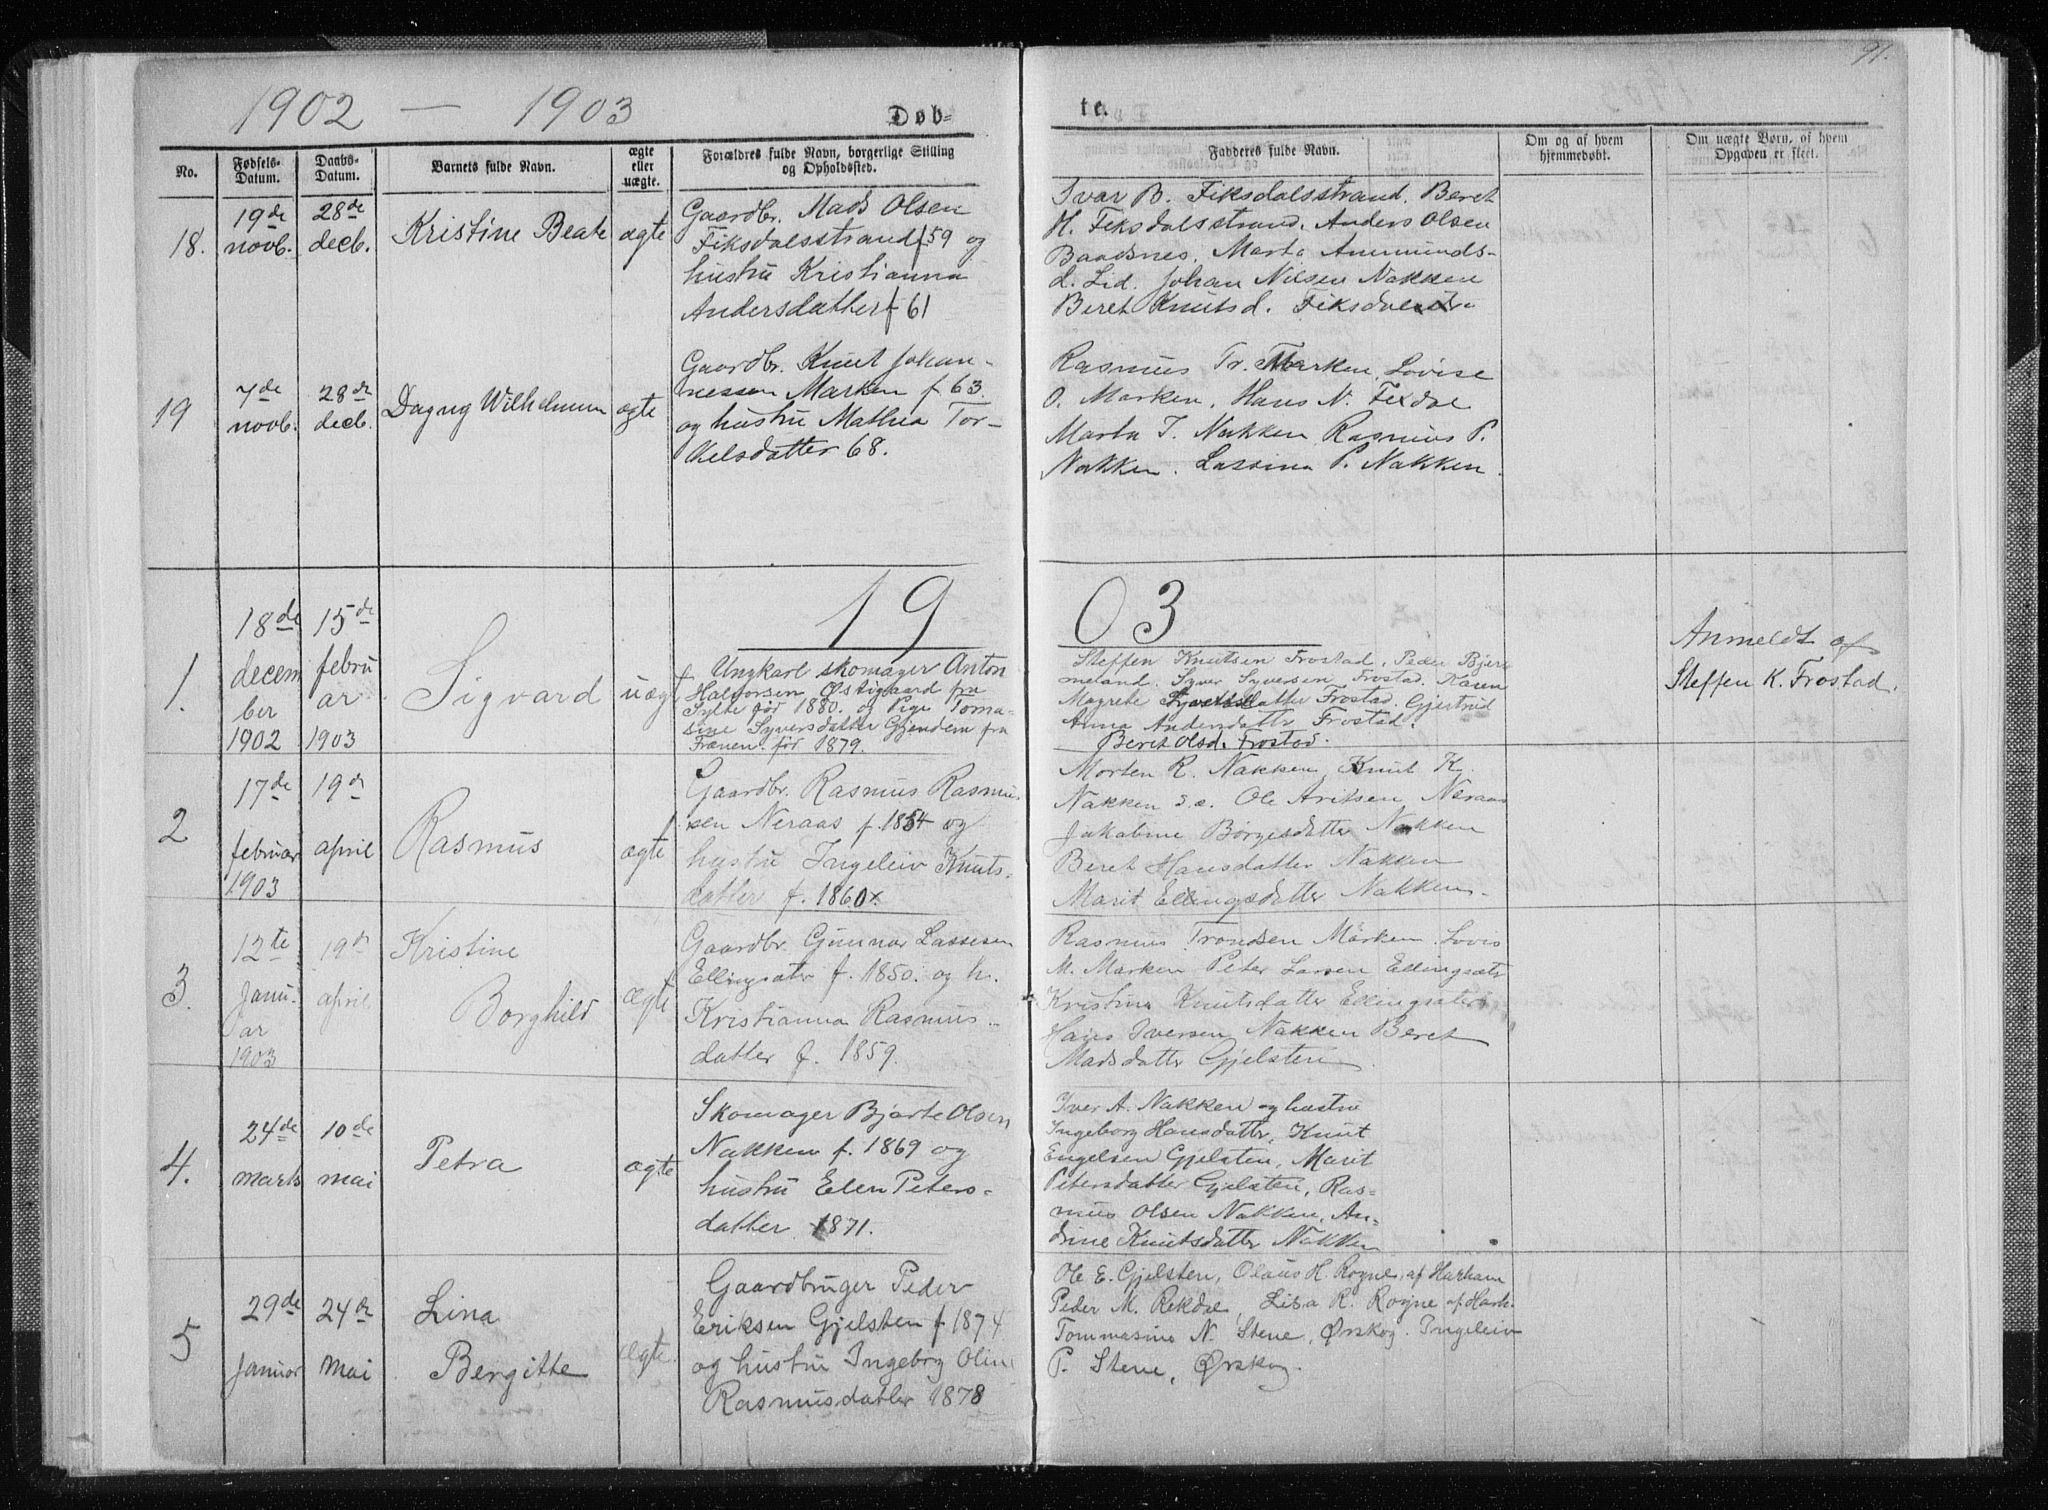 1902 — 1903
Døb-
te.
91.
No.
Fødsels-
Datum.
Daabs-
Datum.
Barnets fulde Navn.
ægte
eller
uægte.
Forældres fulde Navn, borgerlige Stilling
og Opholdssted.
Fadderes fulde Navn.
Om og af hvem
hjemmedøbt.
Om uægte Børn, af hvem
Opgaven er skeet.
18.
19de
novb.
28de
decb.
Kristine Beate
ægte
Gaardbr. Mads Olsen
Fiksdalsstrand f 59 og
hustru Kristianna
Andersdatter f 61
Ivar B. Fiksdalsstrand. Beret
H. Fiksdalsstrand. Anders Olsen
Baadsnes. Marta Ammunds-
d. Lid. Johan Nilsen Nakken
Beret Knutsd.
19
7de
novb.
28de
decb.
Dagny Wilhelmine
ægte
Gaardbr. Knut Johan-
nessen Marken f 63.
og hustru Mathea Tor-
kelsdatter 68.
Rasmus Tr. Marken, Lovise
O. Marken, Hans N. Fixdal
Marta I. Nakken Rasmus P.
Nakken. Lassina P. Nakken.
19 03
1.
18de
decem
ber
1902
15de
febru
ar
1903
Sigvard
uægt
Ungkarl skomager Anton
Halvorsen Østigaard fra
Sylte før 1880. og Pige Toma-
sine Syversdatter Gjendem fra
Frænen. før 1879.
Steffen Knutsen Frostad, Peder Bjer
meland. Syver Syversen Frostad. Karen
Magrete Syversdatter Frostad. Gjertrud
Anna Andersdattr Frostad.
Beret Olsd. Frostad.
Anmeldt af
Steffen K. Frostad.
2
17de
februar
1903
19de
april
Rasmus
ægte
Gaardbr. Rasmus Rasmus
sen Neraas f. 1854 og
hustru Ingeleiv Knuts-
datter f. 1860
Morten R. Nakken, Knut K.
Nakken s.s. Ole Ariksen Neraas
Jakabine Børgesdatter Nakken
Beret Hansdatter Nakken
Marit Ellingsdatter Nakken.
3.
12te
Janu-
ar
1903
19de
april
Kristine
Borghild
ægte
Gaardbr. Gunnar Lassesen
Ellingsætr f. 1850. og h.
Kristianna Rasmus-
datter f. 1859.
Rasmus Trondsen Marken. Lovis
M. Marken Peter Larsen Ellingsætr
Kristina Knutsdatter Ellingsæter
Hans Iversen Nakken Beret
Madsdattr Gjelsten
4.
24de
marts
10de
mai
Petra
ægte
Skomager Bjarte Olsen
Nakken f. 1869 og
hustru Elen Peters-
datter 1871.
Iver A. Nakken og hustru
Ingeborg Hansdatter, Knut
Engelsen Gjelsten, Marit
Petersdatter Gjelsten, Ras-
mus Olsen Nakken, An-
drine Knutsdatter Nakken
5
29de
Januar
24de
mai
Lina
Bergitte
ægte
Gaardbruger Peder
Eriksen Gjelsten f 1874
og hustru Ingeborg Oline
Rasmusdatter 1878
Ole E. Gjelsten, Olaus H. Rogne, af Harham
Peder M. Rekdal, Lisa R. Rogne af Harh.
Tommasine N. Stene, Ørskog. Ingeleiv
P. Stene, Ørskog.